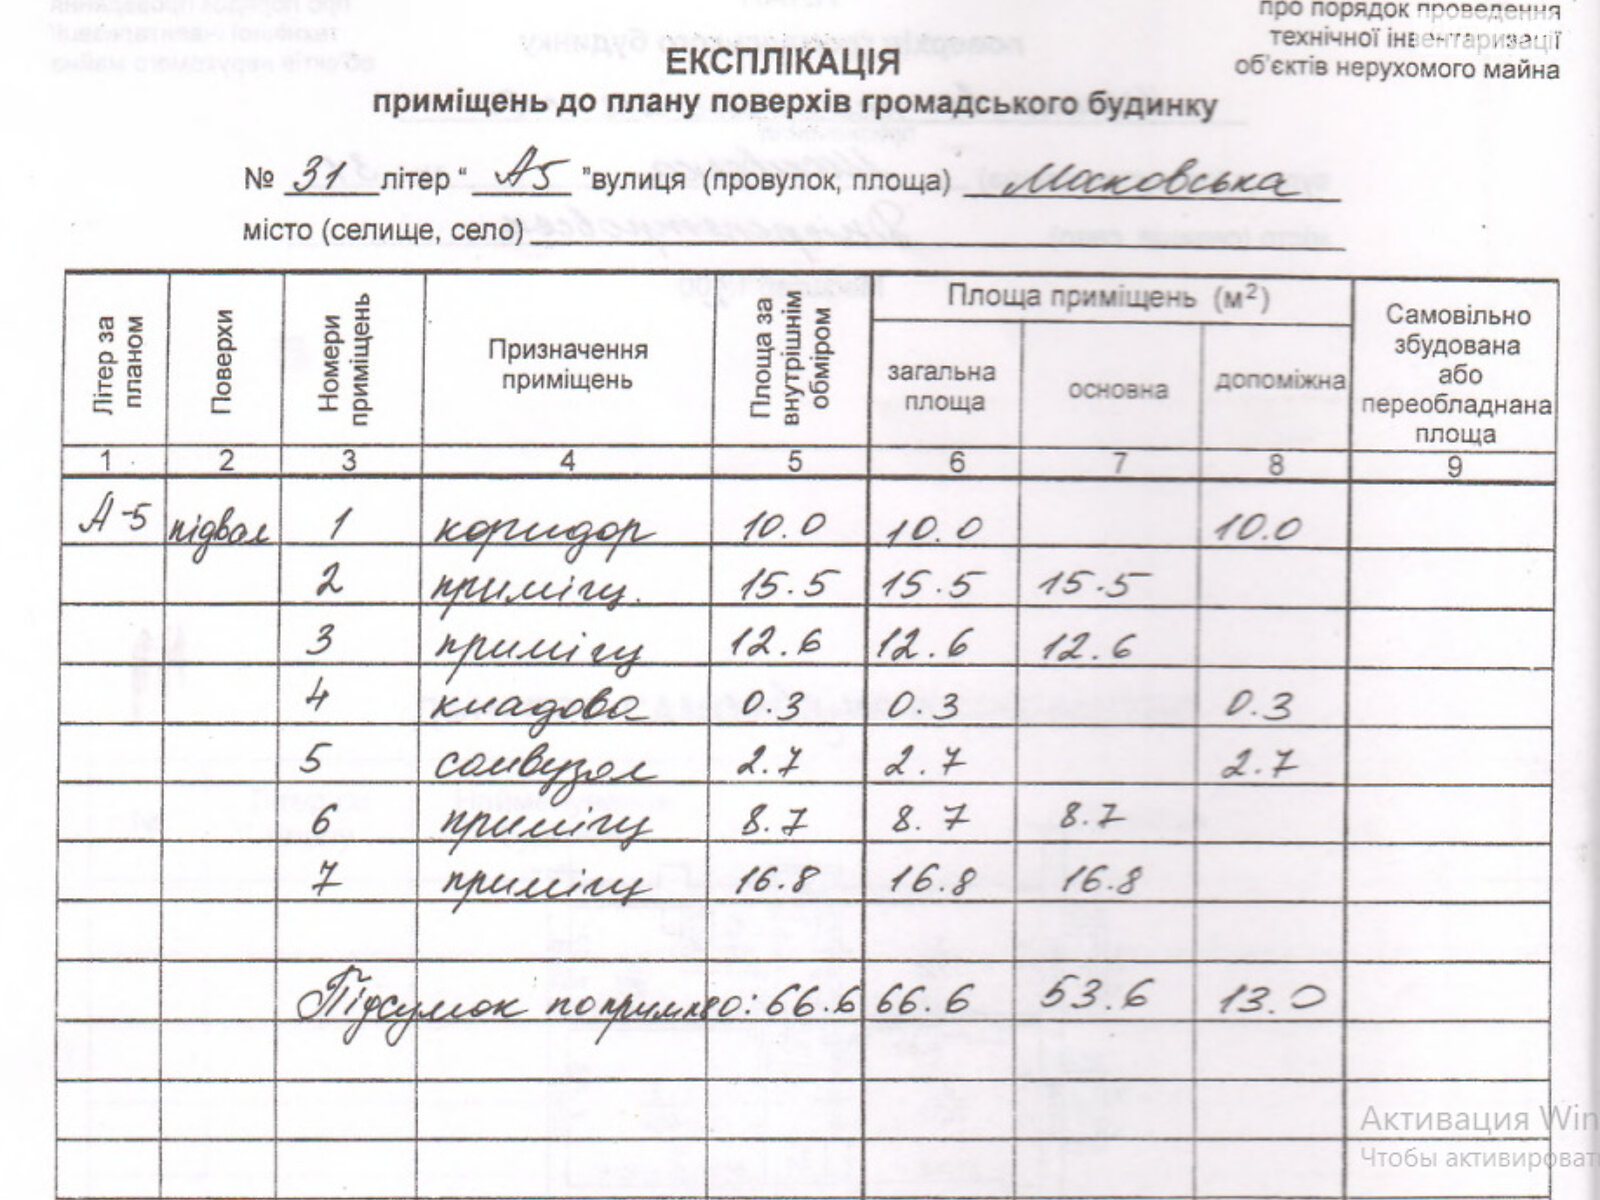 про порядок проведення
технічної інвентаризації
об'єктів нерухомого майна
ЕКСПЛІКАЦІЯ
приміщень до плану поверхів громадського будинку
№ 31 літер “ А5 ”вулиця (провулок, площа) Московська
місто (селище, село)
Літер за планом Поверхи Номери приміщень Призначення приміщень Площа за внутрішнім обміром Площа приміщень (м²) загальна площа основна допоміжна Самовільно збудована або переобладнана площа
1 2 3 4 5 6 7 8 9
А-5 підвал 1 коридор 10.0 10.0 10.0
2 приміщ. 15.5 15.5 15.5
3 приміщ 12.6 12.6 12.6
4 кладова 0.3 0.3 0.3
5 санвузол 2.7 2.7 2.7
6 приміщ 8.7 8.7 8.7
7 приміщ 16.8 16.8 16.8
Підсумок по : 66.6 66.6 53.6 13.0
Активация Win
Чтобы активироват